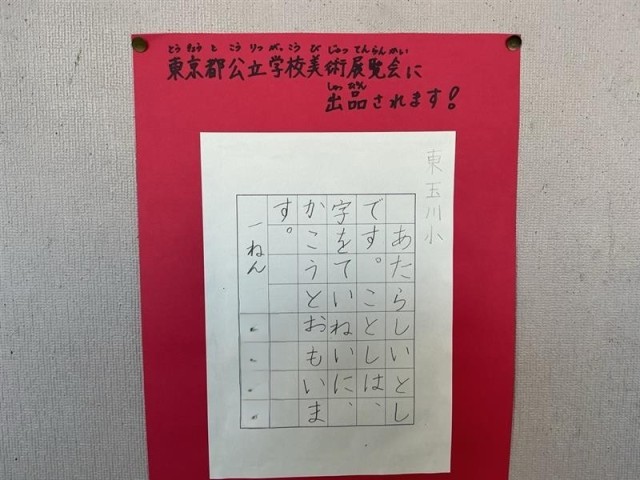 とうきょうとこうりつがっこうびじゅつてんらんかい
東京都公立学校美術展覧会に
しゅっぴん
出品されます!
東玉川小
あたらしいとし
です。ことしは、
字をていねいに、
かこうとおもいま
す。
一ねん